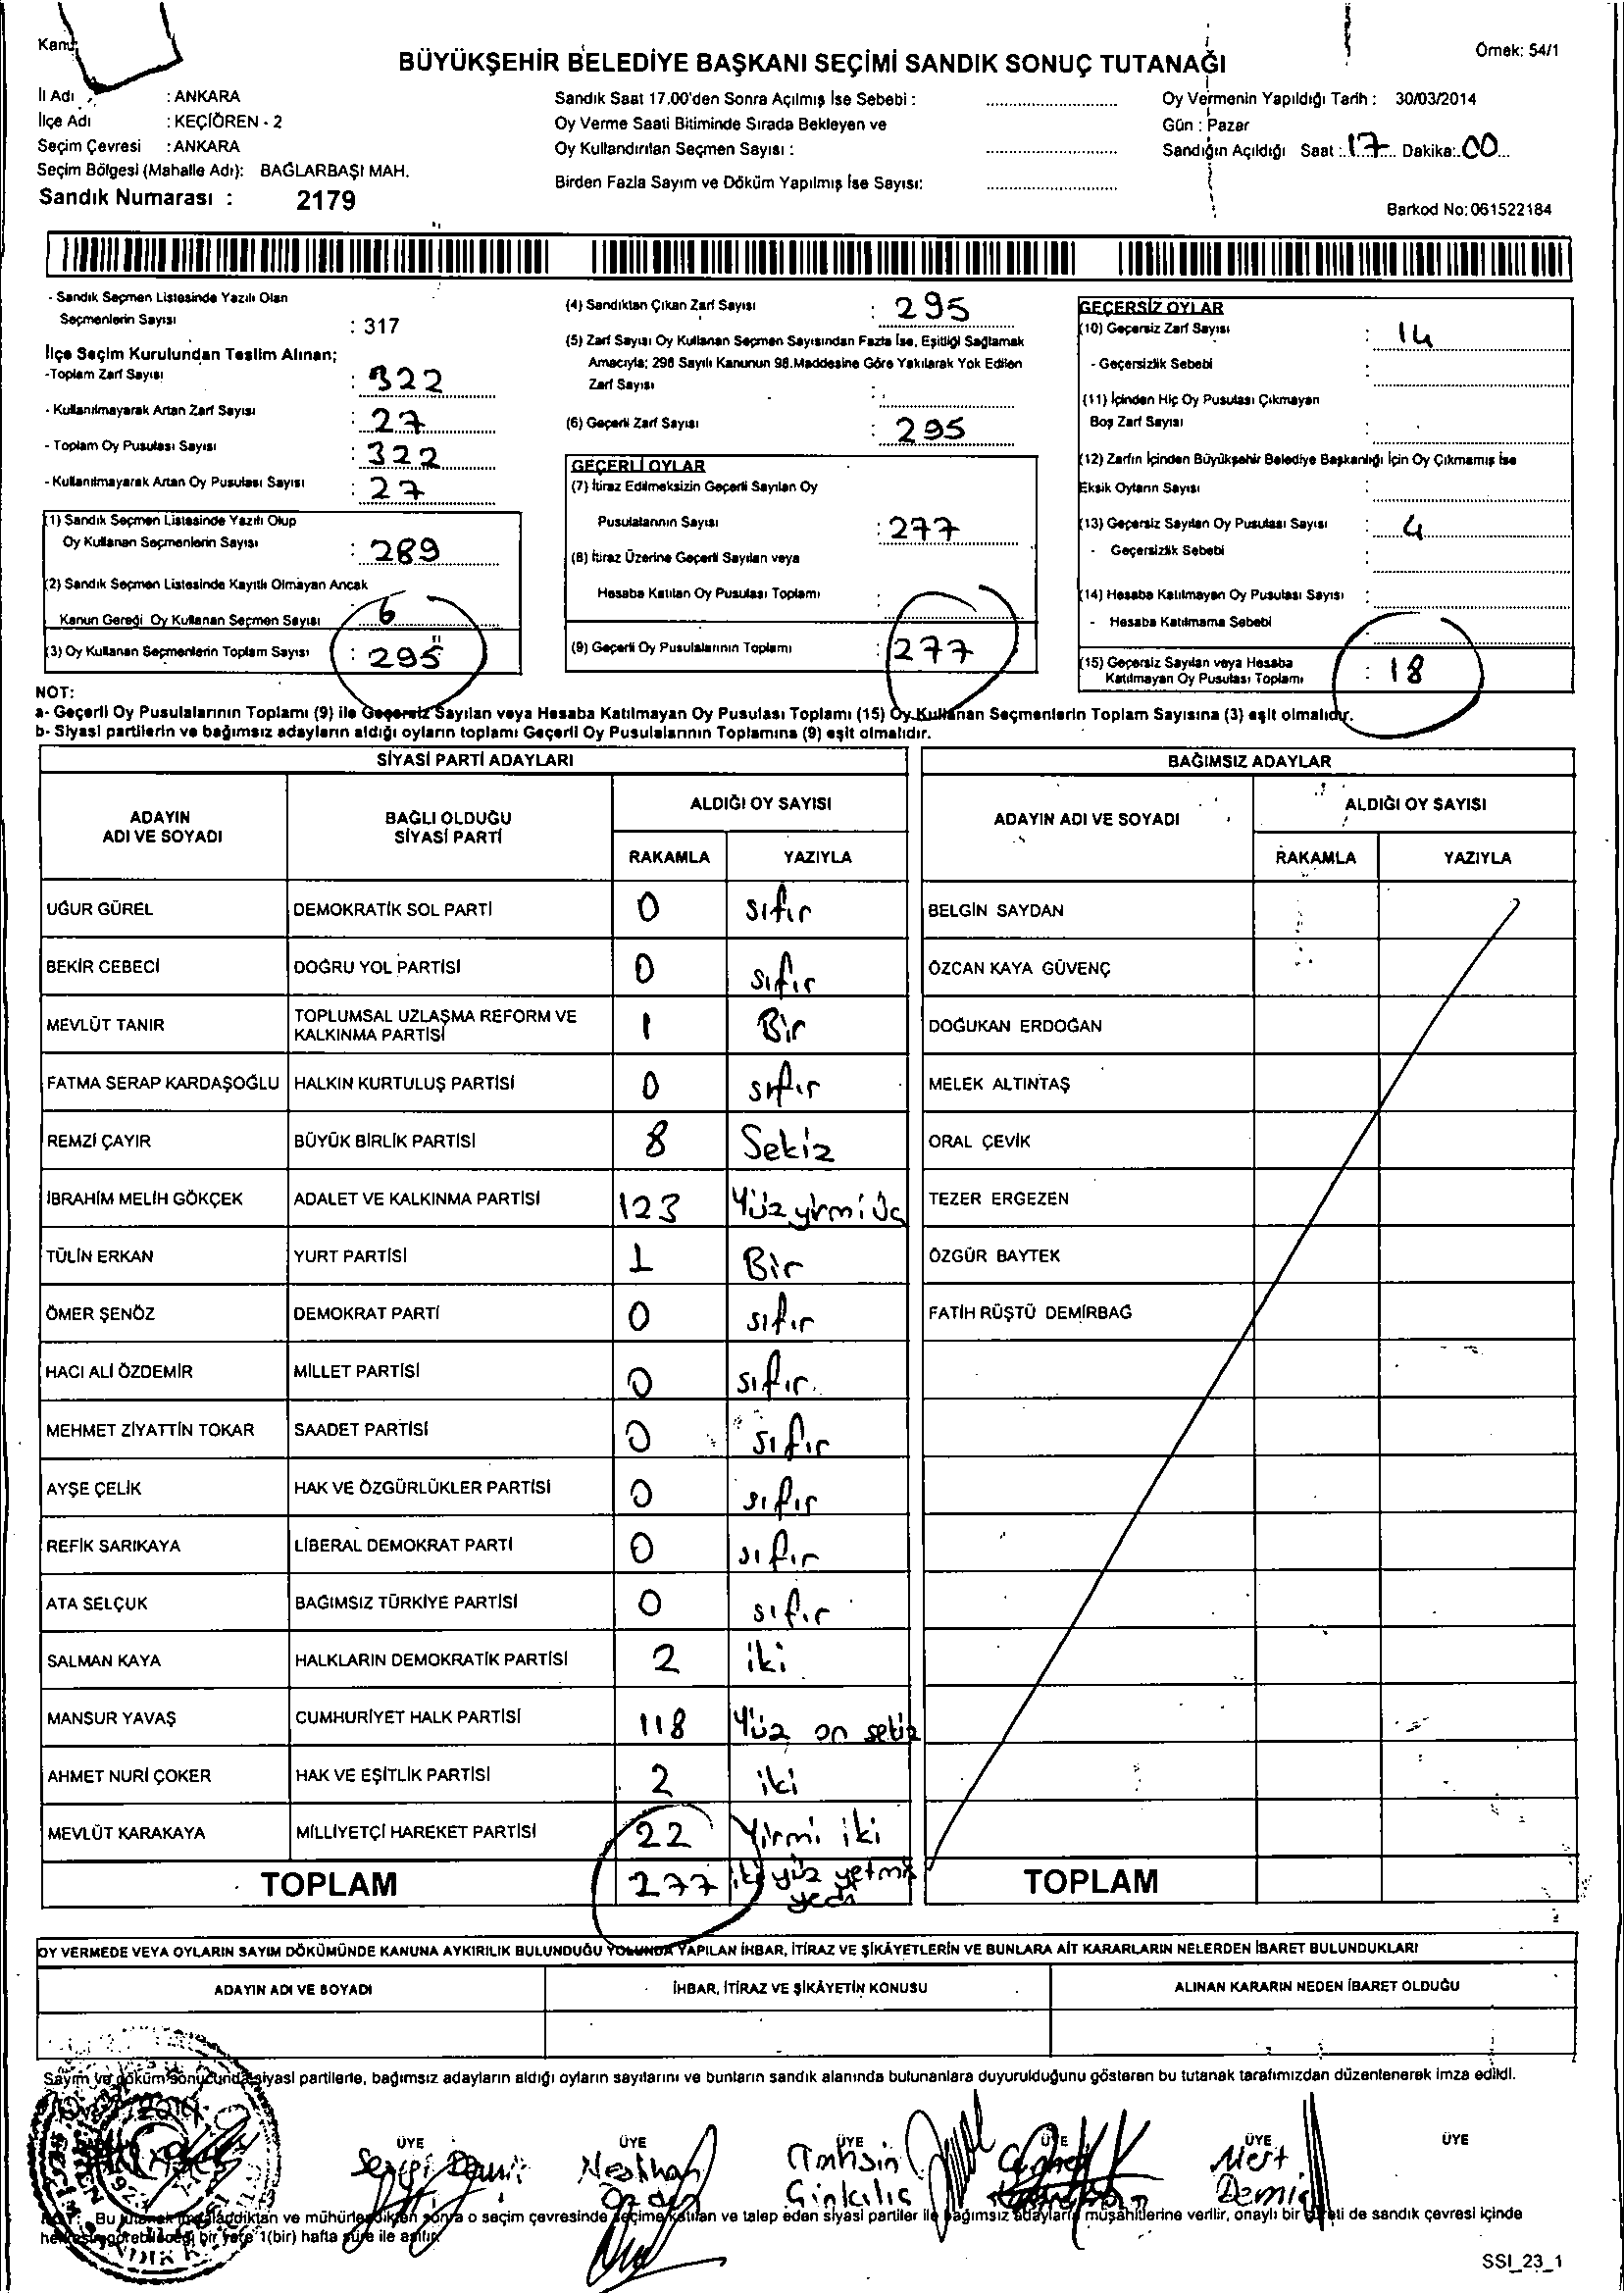 BÜYÜKŞEHİR BELEDİYE BAŞKANI SEÇİMİ SANDIK SONUÇ TUTANAĞI
Örnek: 54/1
İl Adı : ANKARA
İlçe Adı : KEÇİÖREN - 2
Seçim Çevresi : ANKARA
Seçim Bölgesi (Mahalle Adı): BAĞLARBAŞI MAH.
Sandık Numarası : 2179
Sandık Saat 17.00'den Sonra Açılmış İse Sebebi :
Oy Verme Saati Bitiminde Sırada Bekleyen ve
Oy Kullandırılan Seçmen Sayısı :
Birden Fazla Sayım ve Döküm Yapılmış İse Sayısı:
Oy Vermenin Yapıldığı Tarih : 30/03/2014
Gün : Pazar
Sandığın Açıldığı Saat : 17 Dakika: 00
Barkod No: 061522184
- Sandık Seçmen Listesinde Yazılı Olan
Seçmenlerin Sayısı : 317
İlçe Seçim Kurulundan Teslim Alınan;
-Toplam Zarf Sayısı : 322
- Kullanılmayarak Artan Zarf Sayısı : 27
- Toplam Oy Pusulası Sayısı : 322
- Kullanılmayarak Artan Oy Pusulası Sayısı : 27
(1) Sandık Seçmen Listesinde Yazılı Olup
Oy Kullanan Seçmenlerin Sayısı : 289
(2) Sandık Seçmen Listesinde Kayıtlı Olmayan Ancak
Kanun Gereği Oy Kullanan Seçmen Sayısı : 6
(3) Oy Kullanan Seçmenlerin Toplam Sayısı : 295
(4) Sandıktan Çıkan Zarf Sayısı : 295
(5) Zarf Sayısı Oy Kullanan Seçmen Sayısından Fazla İse, Eşitliği Sağlamak
Amacıyla; 298 Sayılı Kanunun 98.Maddesine Göre Yakılarak Yok Edilen
Zarf Sayısı :
(6) Geçerli Zarf Sayısı : 295
GEÇERLİ OYLAR
(7) İtiraz Edilmeksizin Geçerli Sayılan Oy
Pusulalarının Sayısı : 277
(8) İtiraz Üzerine Geçerli Sayılan veya
Hesaba Katılan Oy Pusulası Toplamı :
(9) Geçerli Oy Pusulalarının Toplamı : 277
GEÇERSİZ OYLAR
(10) Geçersiz Zarf Sayısı : 14
- Geçersizlik Sebebi :
(11) İçinden Hiç Oy Pusulası Çıkmayan
Boş Zarf Sayısı :
(12) Zarfın İçinden Büyükşehir Belediye Başkanlığı İçin Oy Çıkmamış İse
Eksik Oyların Sayısı :
(13) Geçersiz Sayılan Oy Pusulası Sayısı : 4
- Geçersizlik Sebebi :
(14) Hesaba Katılmayan Oy Pusulası Sayısı :
- Hesaba Katılmama Sebebi
(15) Geçersiz Sayılan veya Hesaba
Katılmayan Oy Pusulası Toplamı : 18
NOT:
a- Geçerli Oy Pusulalarının Toplamı (9) ile Geçersiz Sayılan veya Hesaba Katılmayan Oy Pusulası Toplamı (15) Oy Kullanan Seçmenlerin Toplam Sayısına (3) eşit olmalıdır.
b- Siyasi partilerin ve bağımsız adayların aldığı oyların toplamı Geçerli Oy Pusulalarının Toplamına (9) eşit olmalıdır.
SİYASİ PARTİ ADAYLARI
ADAYIN ADI VE SOYADI
BAĞLI OLDUĞU SİYASİ PARTİ
ALDIĞI OY SAYISI
RAKAMLA YAZIYLA
UĞUR GÜREL DEMOKRATİK SOL PARTİ 0 sıfır
BEKİR CEBECİ DOĞRU YOL PARTİSİ 0 sıfır
MEVLÜT TANIR TOPLUMSAL UZLAŞMA REFORM VE KALKINMA PARTİSİ 1 Bir
FATMA SERAP KARDAŞOĞLU HALKIN KURTULUŞ PARTİSİ 0 sıfır
REMZİ ÇAYIR BÜYÜK BİRLİK PARTİSİ 8 Sekiz
İBRAHİM MELİH GÖKÇEK ADALET VE KALKINMA PARTİSİ 123 Yüz yirmi üç
TÜLİN ERKAN YURT PARTİSİ 1 Bir
ÖMER ŞENÖZ DEMOKRAT PARTİ 0 sıfır
HACI ALİ ÖZDEMİR MİLLET PARTİSİ 0 sıfır
MEHMET ZİYATTİN TOKAR SAADET PARTİSİ 0 sıfır
AYŞE ÇELİK HAK VE ÖZGÜRLÜKLER PARTİSİ 0 sıfır
REFİK SARIKAYA LİBERAL DEMOKRAT PARTİ 0 sıfır
ATA SELÇUK BAĞIMSIZ TÜRKİYE PARTİSİ 0 sıfır
SALMAN KAYA HALKLARIN DEMOKRATİK PARTİSİ 2 iki
MANSUR YAVAŞ CUMHURİYET HALK PARTİSİ 118 Yüz on sekiz
AHMET NURİ ÇOKER HAK VE EŞİTLİK PARTİSİ 2 iki
MEVLÜT KARAKAYA MİLLİYETÇİ HAREKET PARTİSİ 22 Yirmi iki
TOPLAM 277 iki yüz yetmiş yedi
BAĞIMSIZ ADAYLAR
ADAYIN ADI VE SOYADI
ALDIĞI OY SAYISI
RAKAMLA YAZIYLA
BELGİN SAYDAN
ÖZCAN KAYA GÜVENÇ
DOĞUKAN ERDOĞAN
MELEK ALTINTAŞ
ORAL ÇEVİK
TEZER ERGEZEN
ÖZGÜR BAYTEK
FATİH RÜŞTÜ DEMİRBAĞ
TOPLAM
OY VERMEDE VEYA OYLARIN SAYIM DÖKÜMÜNDE KANUNA AYKIRILIK BULUNDUĞU YOLUNDA YAPILAN İHBAR, İTİRAZ VE ŞİKÂYETLERİN VE BUNLARA AİT KARARLARIN NELERDEN İBARET BULUNDUKLARI
ADAYIN ADI VE SOYADI
İHBAR, İTİRAZ VE ŞİKÂYETİN KONUSU
ALINAN KARARIN NEDEN İBARET OLDUĞU
Sayım ve döküm sonucunda siyasi partilerle, bağımsız adayların aldığı oyların sayılarını ve bunların sandık alanında bulunanlara duyurulduğunu gösteren bu tutanak tarafımızdan düzenlenerek imza edildi.
ÜYE ÜYE ÜYE ÜYE ÜYE ÜYE
Neslihan
Mert
Bu tutanak imzalandıktan ve mühürlendikten sonra o seçim çevresinde seçime katılan ve talep eden siyasi partiler ile bağımsız adayların müşahitlerine verilir, onaylı bir sureti de sandık çevresi içinde
herkesin görebileceği bir yere 1(bir) hafta süre ile asılır.
SSI_23_1